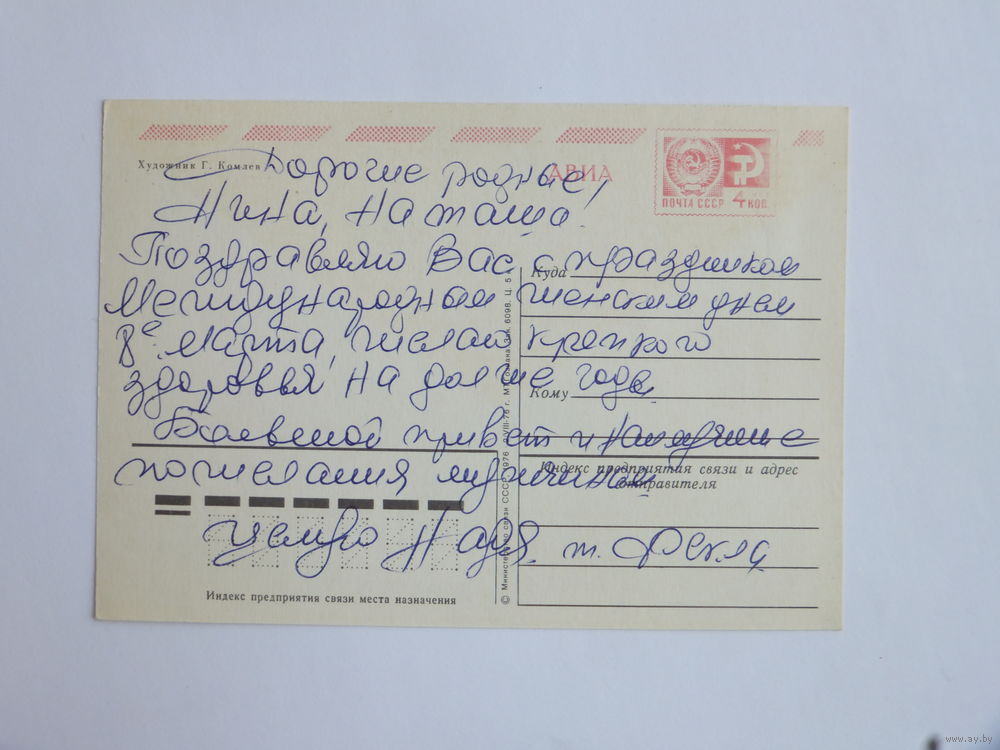 Художник Г. Комлев
АВИА
ПОЧТА СССР 4 коп.
Дорогие родные,
Нина, Наташа!
Поздравляю Вас с праздником
Международным женским днем
8е марта, желаю крепкого
здоровья на долгие годы
Большой привет и наилучшие
пожелания мужчинам
Целую Надя. т. Фекла
Куда
Кому
Индекс предприятия связи и адрес отправителя
Индекс предприятия связи места назначения
© Министерство связи СССР, 1976
www.ay.by